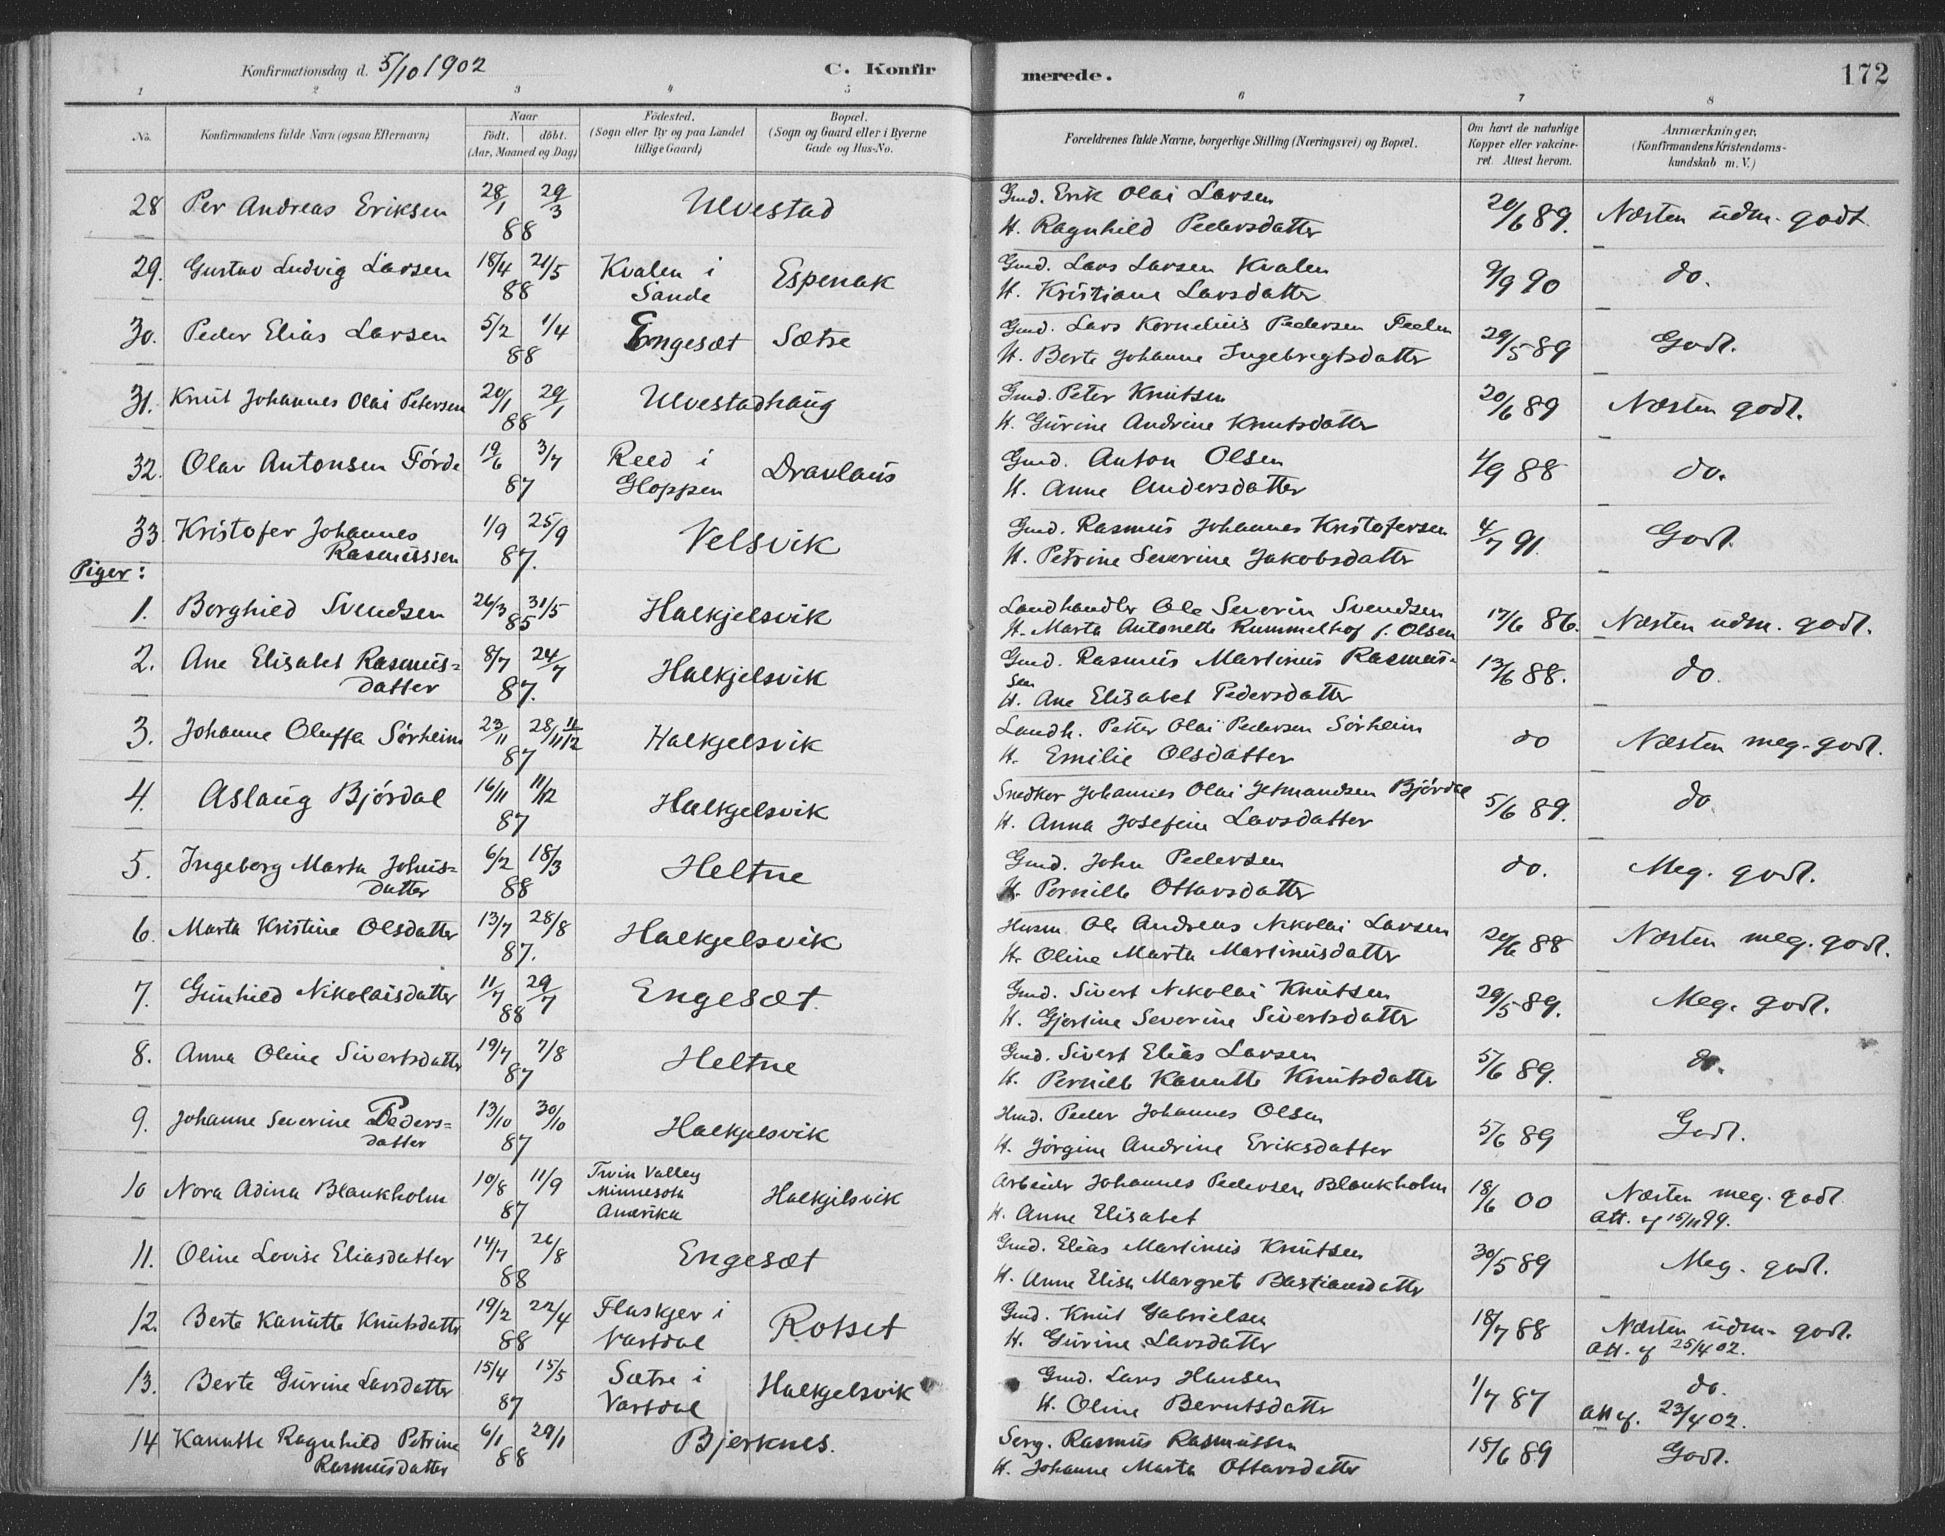 Konfirmationsdag d. 5/10 1902
C. Konfirmerede.
172
1 2 3 4 5 6 7 8
No.
Konfirmandens fulde Navn (ogsaa Efternavn)
Naar
födt. döbt.
(Aar, Maaned og Dag)
Födested.
(Sogn eller By og paa Landet
tillige Gaard)
Bopæl.
(Sogn og Gaard eller i Byerne
Gade og Hus-No.
Forældrenes fulde Navne, borgerlige Stilling (Næringsvei) og Bopæl.
Om havt de naturlige
Kopper eller vakcine-
ret. Attest herom.
Anmærkninger,
(Konfirmandens Kristendoms-
kundskab m. V.)
28 Per Andreas Eriksen 28/1 29/3 88 Ulvestad Gmd. Erik Olai Larsen
H. Ragnhild Pedersdatter 20/6 89. Næsten udm. godt
29. Gustav Ludvig Larsen 18/4 21/5 88 Kvalen i Sande Espenak Gmd. Lars Larsen Kvalen
H. Kristiane Larsdatter 9/9 90 do.
30. Peder Elias Larsen 5/2 1/4 88 Engesæt Sætre Gmd. Lars Kornelius Pedersen
H. Berte Johanne Ingebregtsdatter 29/5 89 Godt.
31. Knut Johannes Olai Petersen 20/1 29/1 88 Ulvestadhaug Gmd. Peter Knutsen
H. Gurine Andrine Knutsdatter 20/6 89 Næsten godt.
32. Olav Antonsen Förde 19/6 3/7 87 Reed i Gloppen Dravlaus Gmd. Anton Olsen
H. Anne Andersdatter 1/9 88 do.
33. Kristofer Johannes
Rasmussen 1/9 25/9 87. Velsvik Gmd. Rasmus Johannes Kristofersen
H. Petrine Severine Jakobsdatter 4/7 91. Godt.
Piger:
1. Borghild Svendsen 26/3 31/5 85 Halkjelsvik Landhandler Ole Severin Svendsen
H. Marta Antonette Rummelhof f. Olsen 17/6 86. Næsten udm. godt.
2. Ane Elisabet Rasmus=
datter 8/7 24/7 87. Halkjelsvik Gmd. Rasmus Martinus Rasmus-
sen
H. Ane Elisabet Pedersdatter 13/6 88. do.
3. Johanne Oluffa Sörheim 23/11 28/11 11/12 87 Halkjelsvik Landh. Petter Olai Pedersen Sörheim
H. Emilie Olsdatter do Næsten meg. godt.
4. Aslaug Björdal 16/11 11/12 87 Halkjelsvik Snedker Johannes Olai Jetmundsen Björdal
H. Anna Josefine Larsdatter 5/6 89. do
5. Ingeborg Marta Johns=
datter 6/2 18/3 88 Heltne Gmd. John Pedersen
H. Pernille Ottarsdatter do. Meg. godt.
6. Marta Kristine Olsdatter 13/7 28/8 87. Halkjelsvik Husm Ole Andreas Nikolai Larsen
H. Oline Marta Martinusdatter 20/6 88 Næsten meg. godt.
7. Gunhild Nikolaisdatter 11/7 29/7 88 Engesæt. Gmd. Sivert Nikolai Knutsen
H. Gjertine Severine Sivertsdatter 29/5 89. Meg. godt.
8. Anna Oline Sivertsdatter 19/7 7/8 87 Heltne Gmd. Sivert Elias Larsen
H. Pernille Kanutte Knutsdatter 5/6 89. do.
9. Johanne Severine Peders=
datter 13/10 30/10 87 Halkjelsvik Hmd. Peder Johannes Olsen
H. Jörgine Andrine Eriksdatter 5/6 89 Godt.
10 Nora Adina Blankholm 10/8 11/9 87 Twin Valley
Minnesota
Amerika Halkjelsvik Arbeider Johannes Pedersen Blankholm
H. Anne Elisabet 18/6 00 Næsten meg. godt
Att. af 15/11 99.
11. Oline Lovise Eliasdatter 14/7 26/8 88 Engesæt Gmd. Elias Martinus Knutsen
H. Anne Elisa Margrete Bastiansdatter 30/5 89 Meg. godt.
12. Berte Kanutte Knutsdatter 19/2 22/4 88 Flaskjer i Vartdal Rotset Gmd. Knut Gabrielsen
H. Gurine Larsdatter 18/7 88 Næsten udm. godt.
Att. af 25/4 02.
13. Berte Gurine Larsdatter 15/4 15/5 87 Sætre i Vartdal Halkjelsvik Gmd. Lars Hansen
H. Oline Berntsdatter 1/7 87 do.
Att af. 23/4 02.
14 Kanutte Ragnhild Petrine
Rasmusdatter 6/1 29/1 88 Bjerknes. Serg. Rasmus Rasmussen
H. Johanne Marta Ottarsdatter 15/6 89 Godt.